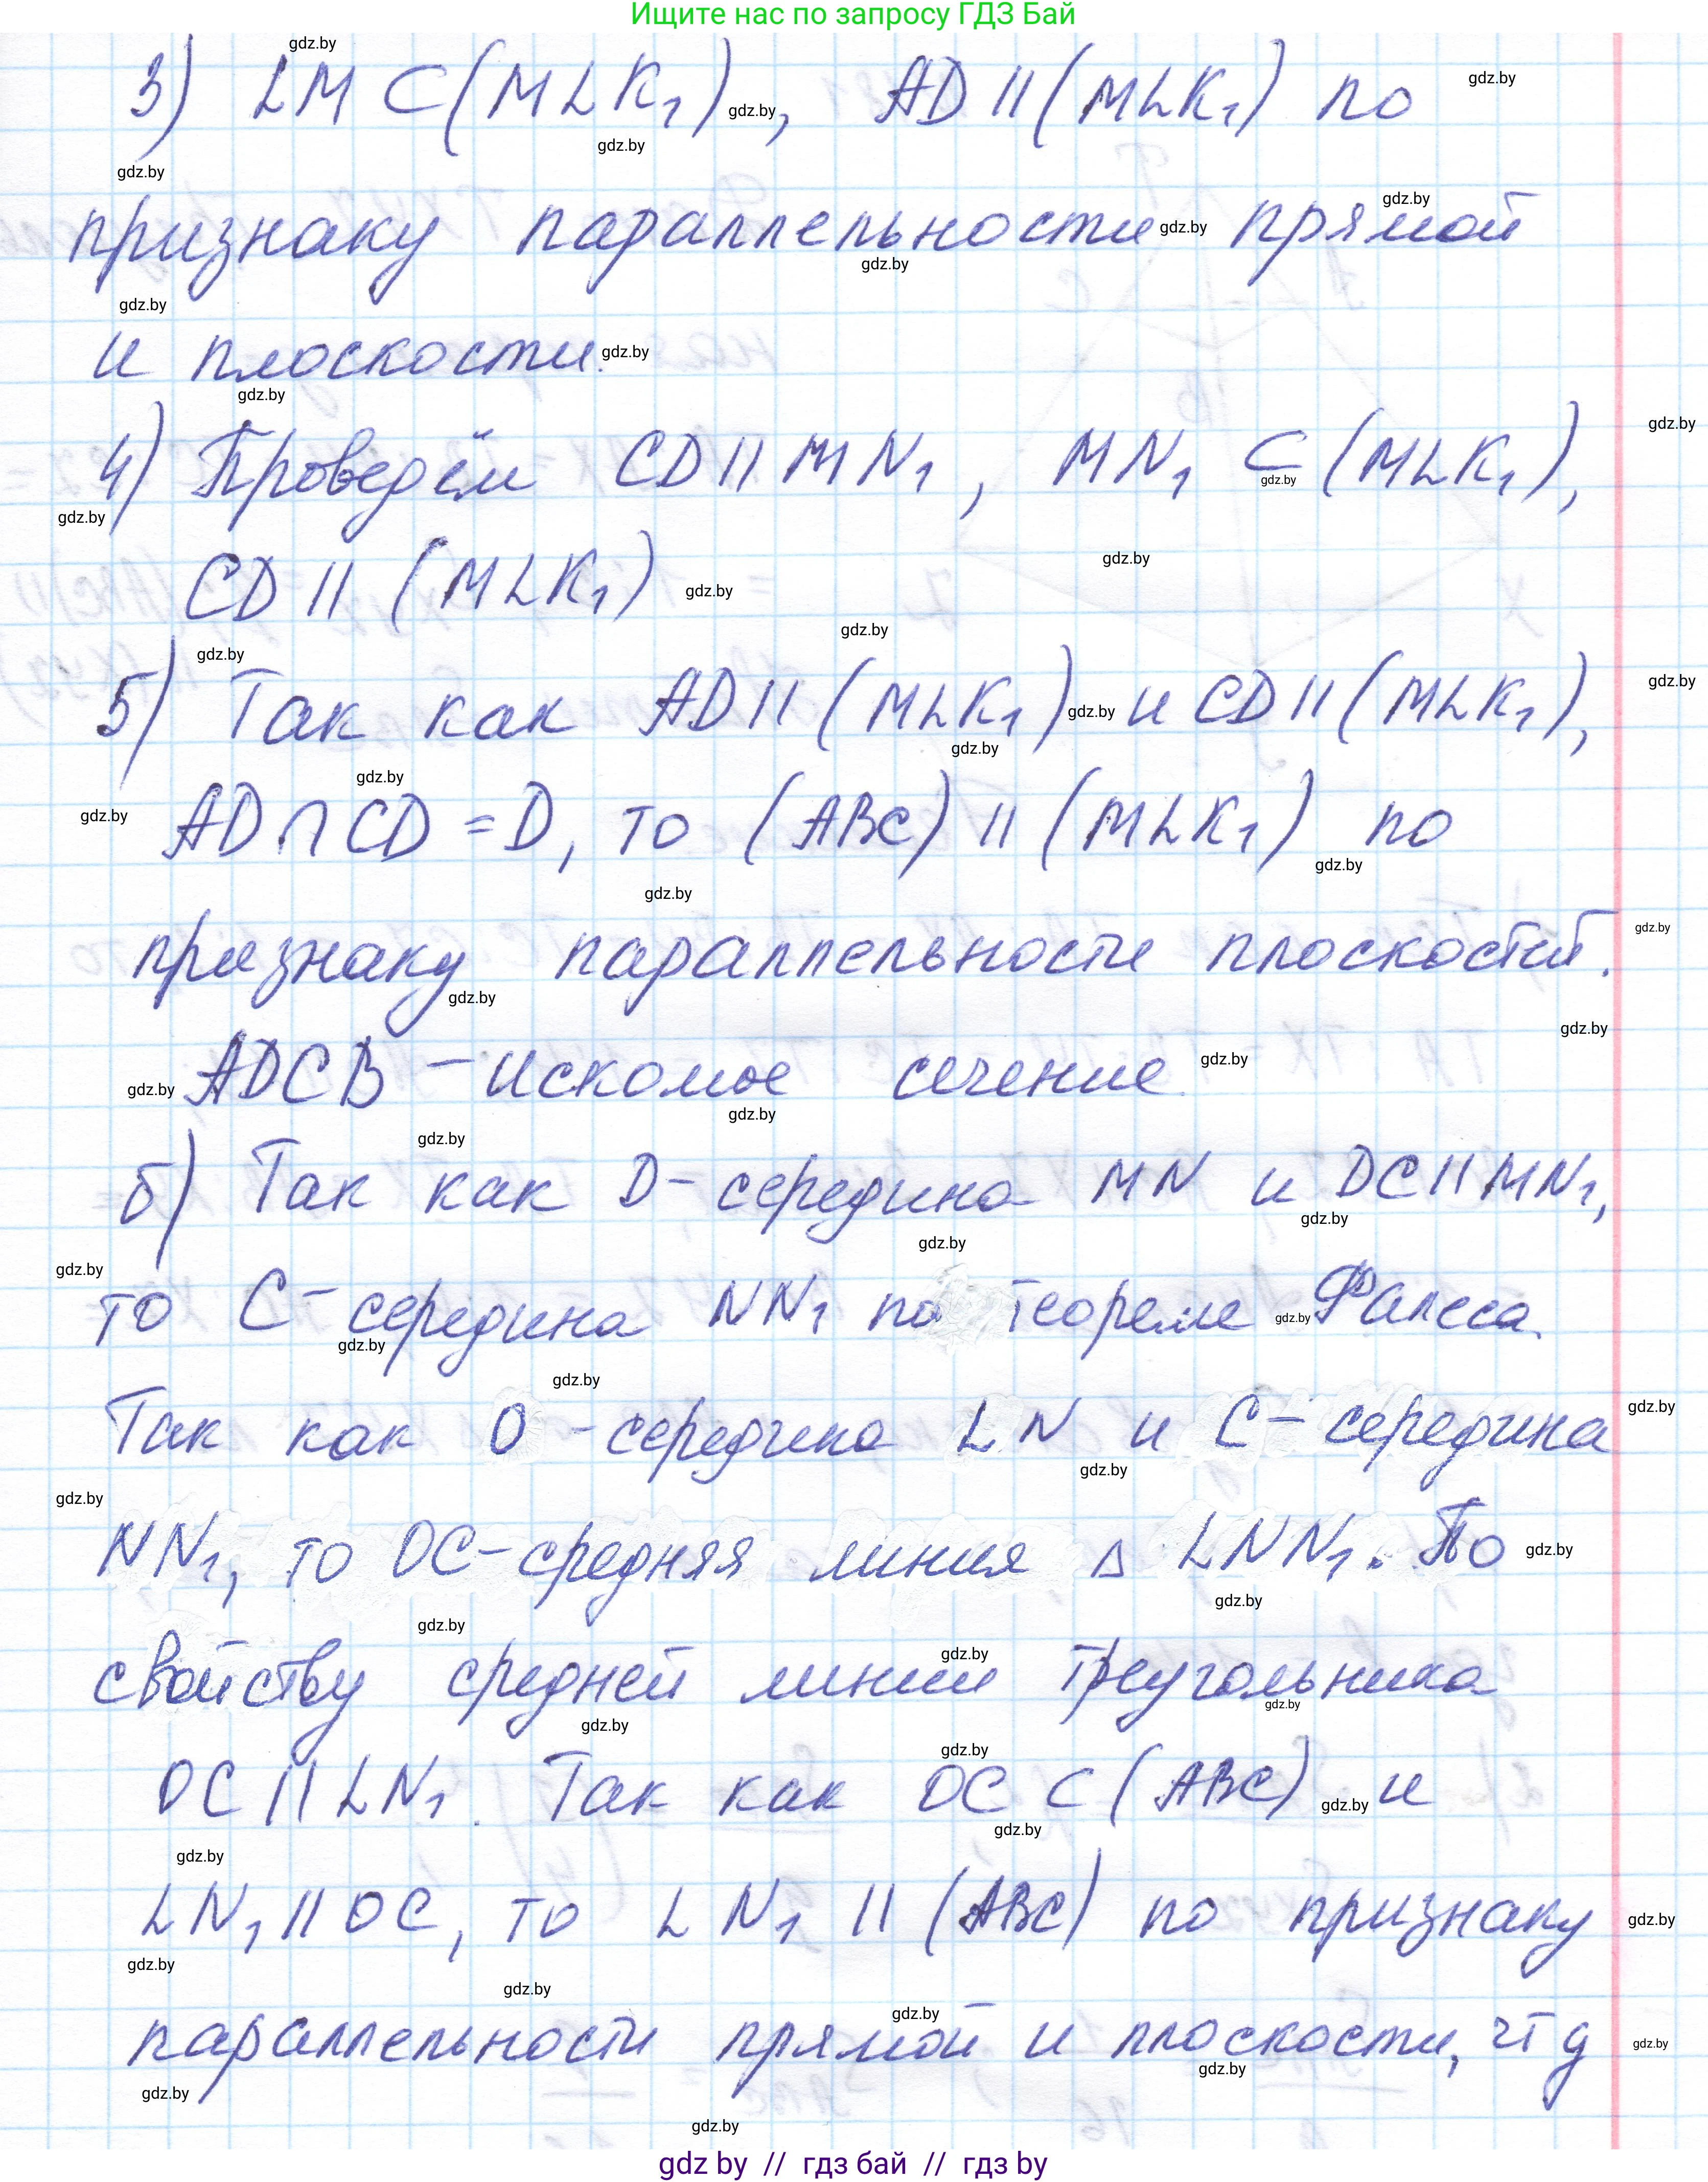 Ищите нас по запросу ГДЗ Бай
3) LM ⊂ (MLK₁), AD || (MLK₁) по
признаку параллельности прямой
и плоскости.
4) Проведём CD || MN₁, MN₁ ⊂ (MLK₁),
CD || (MLK₁)
5) Так как AD || (MLK₁) и CD || (MLK₁),
AD ∩ CD = D, то (ABC) || (MLK₁) по
признаку параллельности плоскостей.
ADCB – искомое сечение.
б) Так как D – середина MN и DC || MN₁,
то C – середина NN₁ по теореме Фалеса.
Так как O – середина LN и C – середина
NN₁, то OC – средняя линия △ LNN₁. По
свойству средней линии треугольника
OC || LN₁. Так как OC ⊂ (ABC) и
LN₁ || OC, то LN₁ || (ABC) по признаку
параллельности прямой и плоскости, чтд
gdz by // гдз бай // гдз by